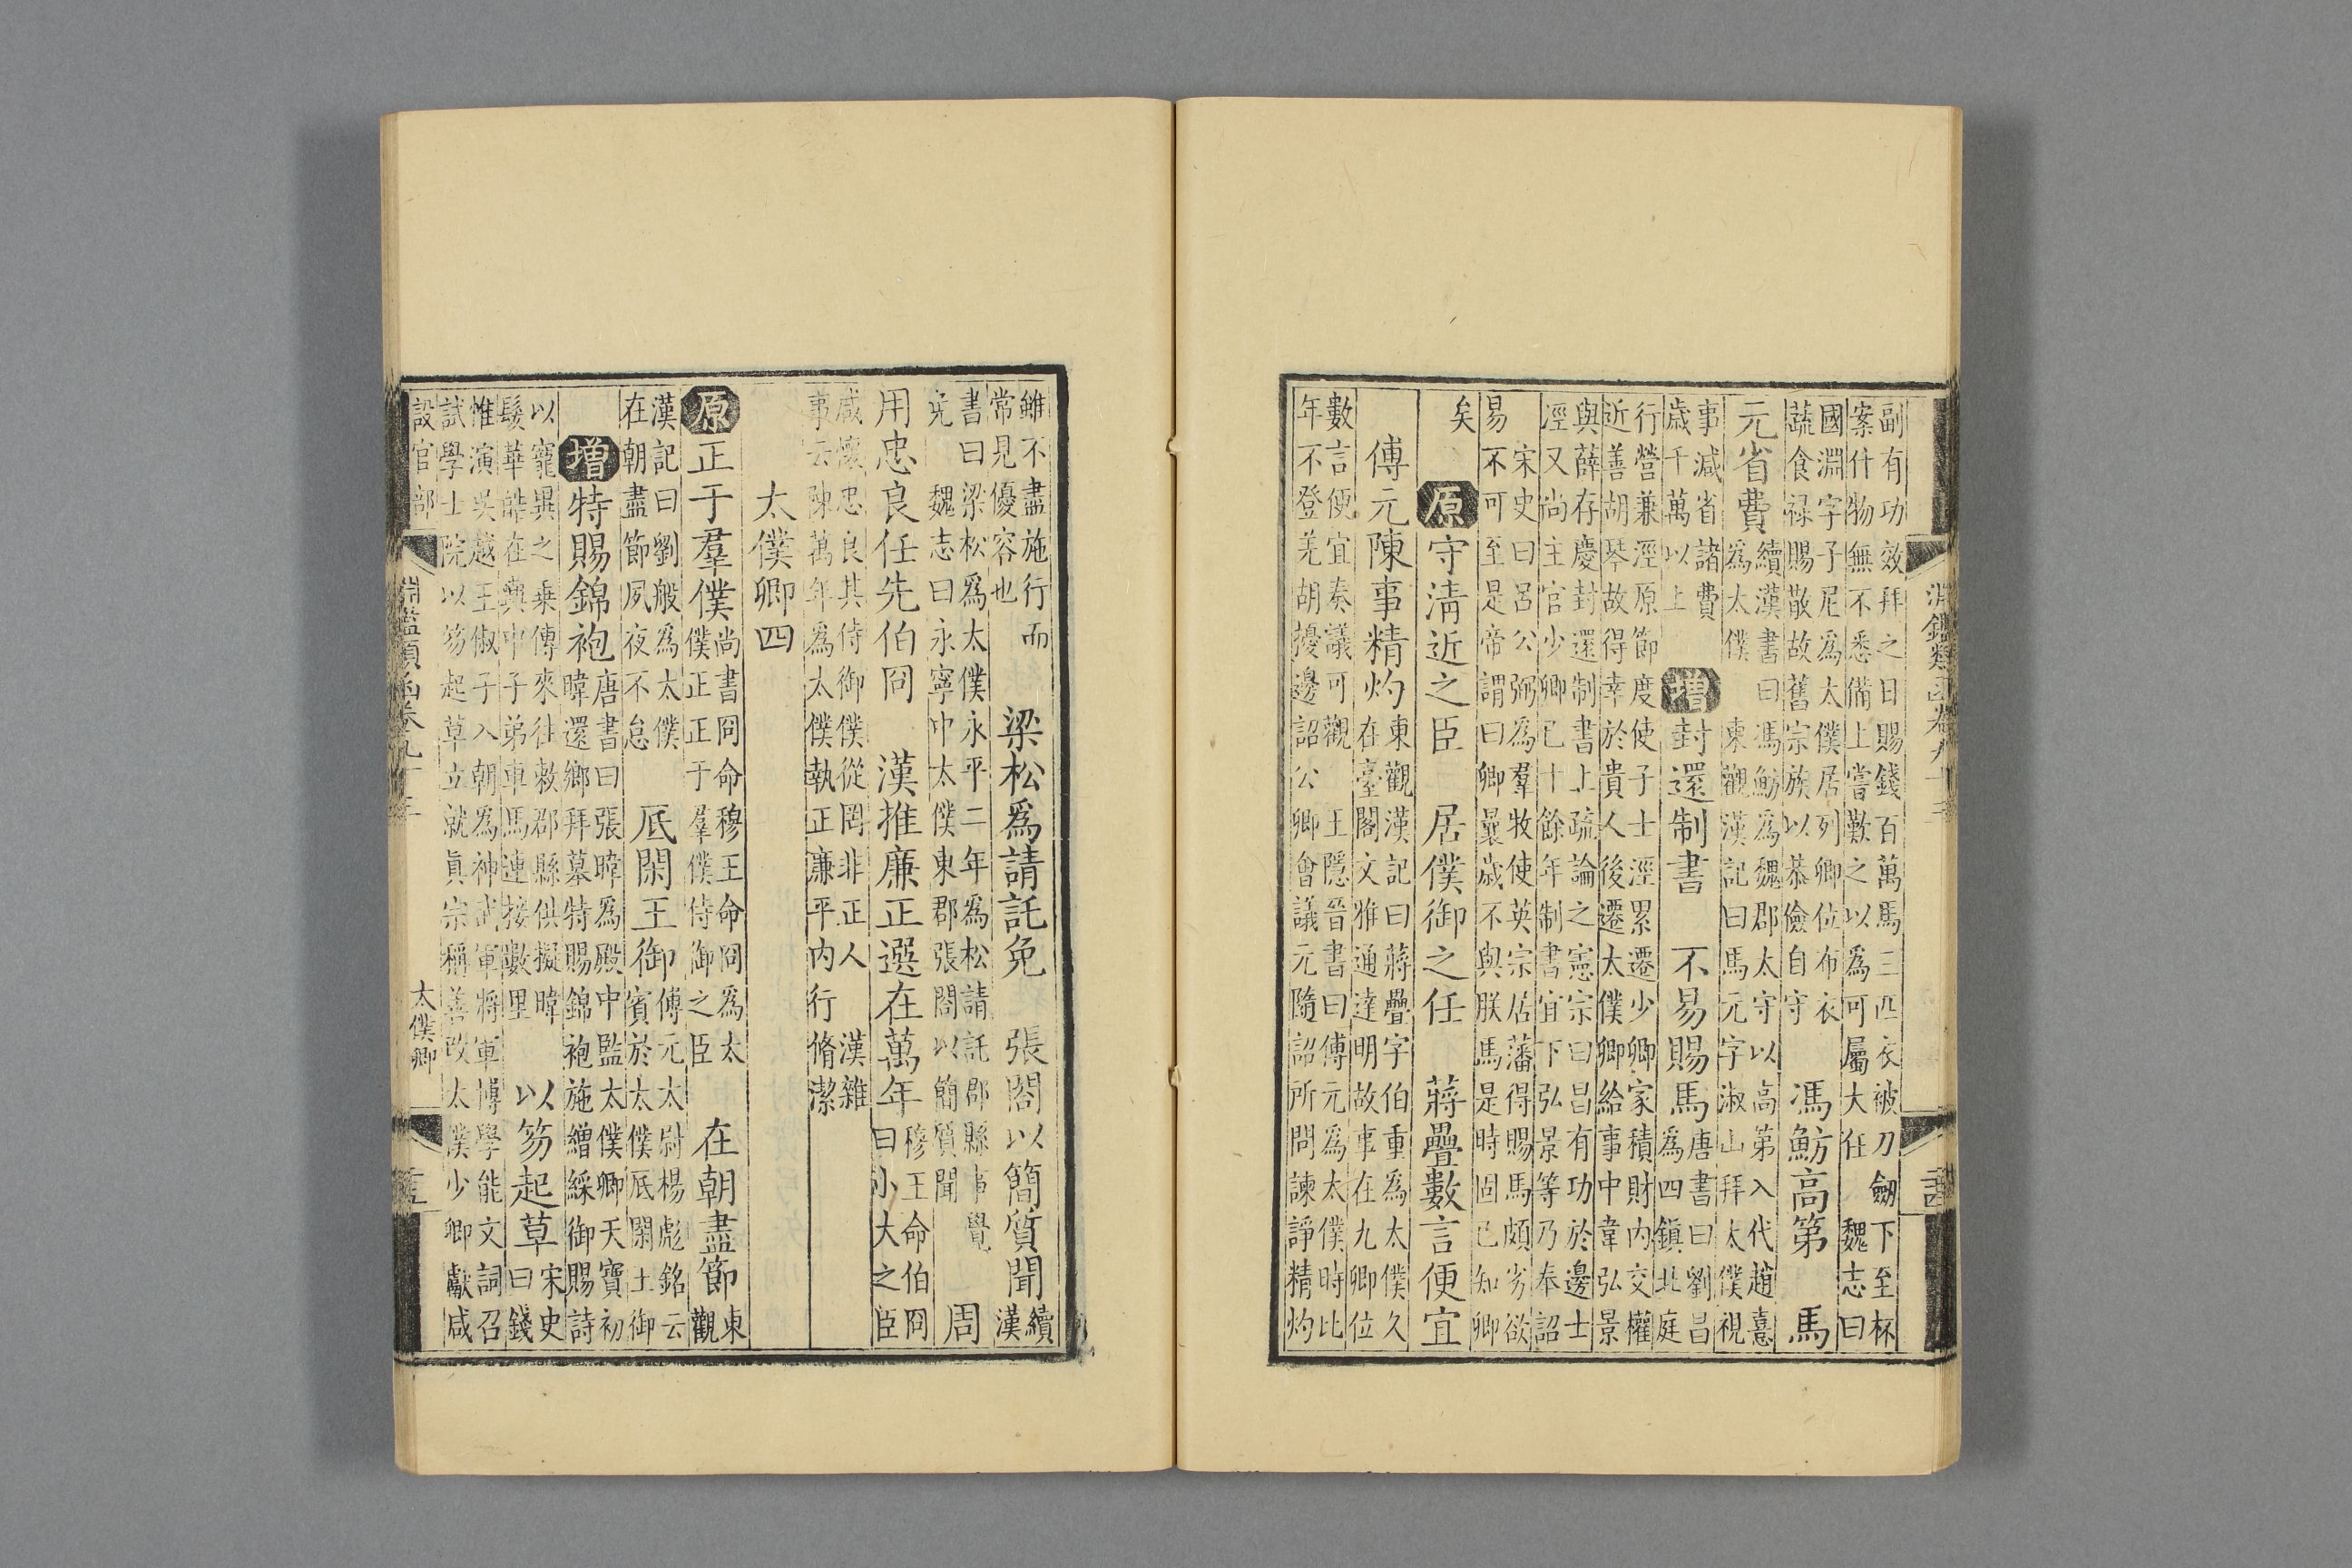 淵鑑類函卷九十三
副有功效拜之日賜錢百萬馬三匹衣被刀劒下至杯
案什物無不悉備上嘗歎之以爲可屬大任　魏志曰
國淵字子尼爲太僕居列卿位布衣
蔬食祿賜散故舊宗族以恭儉自守　馮魴高第　馬
元省費　續漢書曰馮魴爲魏郡太守以高第入代趙憙
爲太僕　東觀漢記曰馬元字淑山拜太僕視
事減省諸費
歲千萬以上　增　封還制書　不易賜馬　唐書曰劉昌
爲四鎮北庭
行營兼涇原節度使子士涇累遷少卿家積財內交權
近善胡琴故得幸於貴人後遷太僕卿給事中韋弘景
與薛存慶封還制書上疏論之憲宗曰昌有功於邊士
涇又尚主官少卿已十餘年制書宜下弘景等乃奉詔
宋史曰呂公弼爲羣牧使英宗居藩得賜馬頗劣欲
易不可至是帝謂曰卿曩歲不與朕馬是時固已知卿
矣　原　守淸近之臣　居僕御之任　蔣疊數言便宜
傅元陳事精灼　東觀漢記曰蔣疊字伯重爲太僕久
在臺閣文雅通達明故事在九卿位
數言便宜奏議可觀　王隱晉書曰傅元爲太僕時比
年不登羌胡擾邊詔公卿會議元隨詔所問諫諍精灼
雖不盡施行而
常見優容也　梁松爲請託免　張閣以簡質聞　續
漢
書曰梁松爲太僕永平二年爲松請託郡縣事覺
免　魏志曰永寧中太僕東郡張閣以簡質聞　周
用忠良任先伯冏　漢推廉正選在萬年　穆王命伯冏
曰小大之臣
咸懷忠良其侍御僕從罔非正人　漢雜
事云陳萬年爲太僕執正廉平內行脩潔
太僕卿四
原　正于羣僕　尚書冏命穆王命冏爲太
僕正正于羣僕侍御之臣　在朝盡節　東
觀
漢記曰劉般爲太僕
在朝盡節夙夜不怠　厎閑王御　傅元太尉楊彪銘云
賓於太僕厎閑王御
增　特賜錦袍　唐書曰張暐爲殿中監太僕卿天寶初
暐還鄉拜墓特賜錦袍施繒綵御賜詩
以寵異之乘傳來往敕郡縣供擬暐
髮華皓在輿中子弟車馬連接數里　以笏起草　宋史
曰錢
惟演吳越王俶子入朝爲神武軍將軍博學能文詞召
試學士院以笏起草立就眞宗稱善改太僕少卿獻咸
淵鑑類函卷九十三　太僕卿
設官部